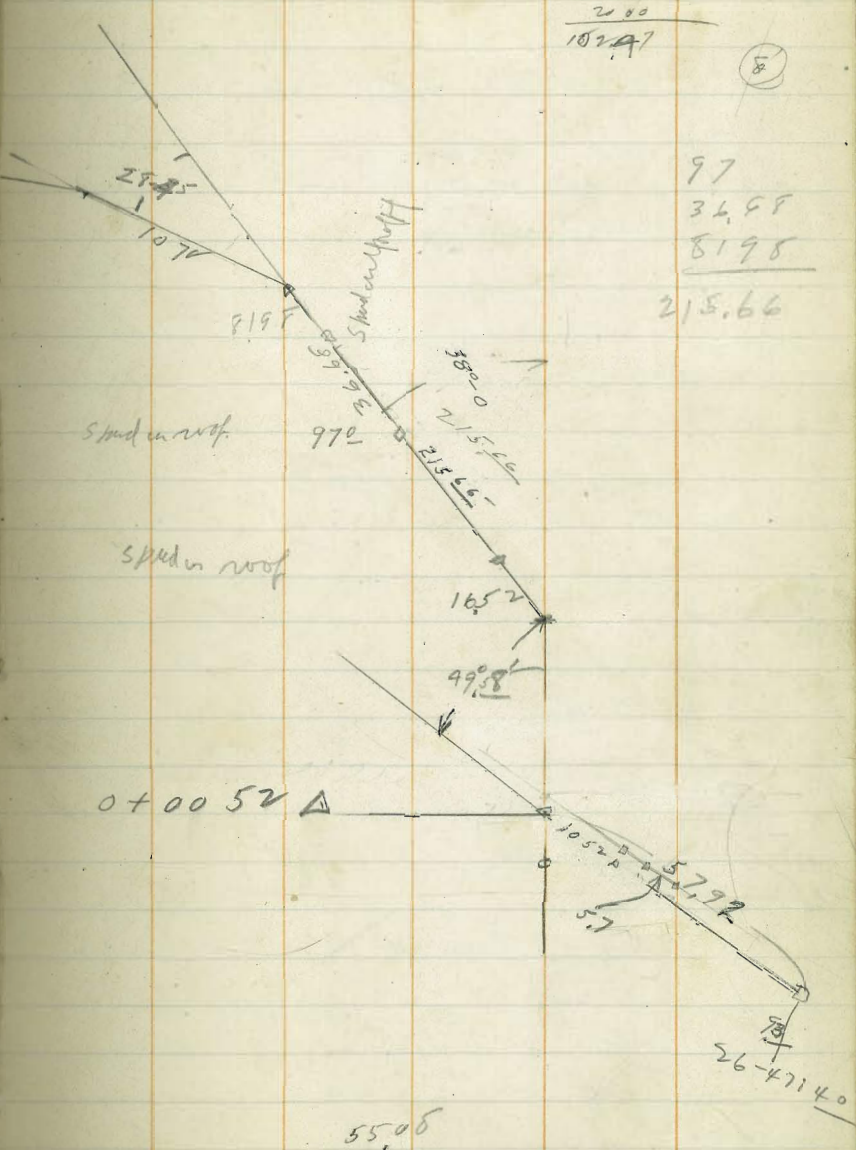 2 00
102.47
8
97
36.68
8198
215.66
28.45
1072
8198
Spud in roof
36.68
38° 20
Spud in roof.
970
215.66
215 66
Spud in roof
16.52
49° 58'
0 + 00 52 △
1052
57.92
5.7
93
26-47: 40
55.08